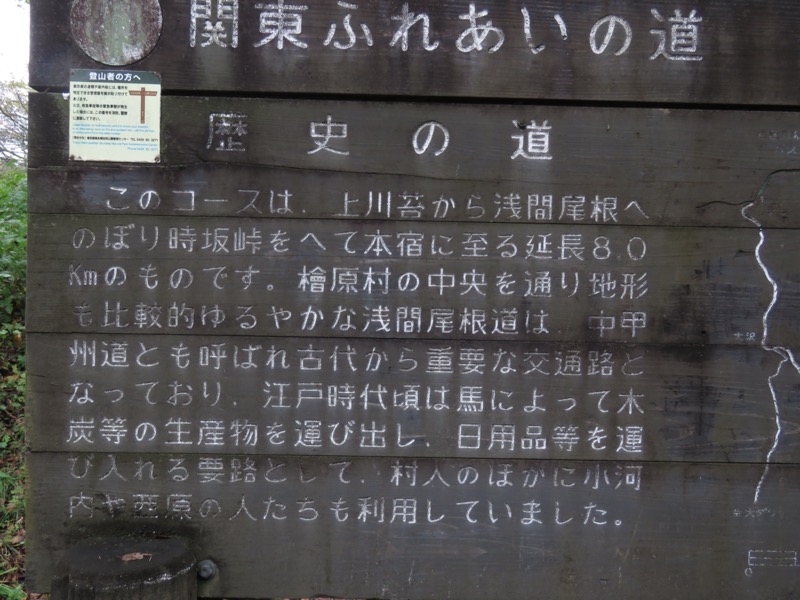 関東ふれあいの道
登山者の方へ
歴史の道
このコースは、上川苔から浅間尾根へ
のぼり時坂峠をへて本宿に至る延長8.0
Kmのものです。檜原村の中央を通り地形
も比較的ゆるやかな浅間尾根道は、中甲
州道とも呼ばれ古代から重要な交通路と
なっており、江戸時代頃は馬によって木
炭等の生産物を運び出し、日用品等を運
び入れる要路として、村人のほかに小河
内や西原の人たちも利用していました。
大沢
0